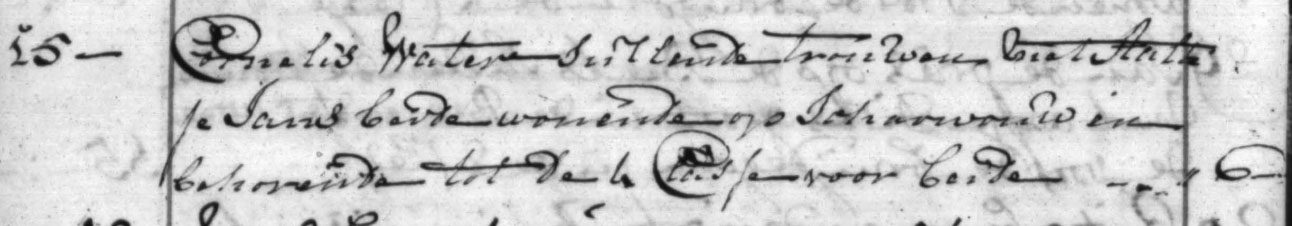 15 - Cornelis Water Sullende trouwen met Aaltie
je Jans beide wonende op Scharwouw en
behorende tot de 4 Classe voor beide - - - " 6 -